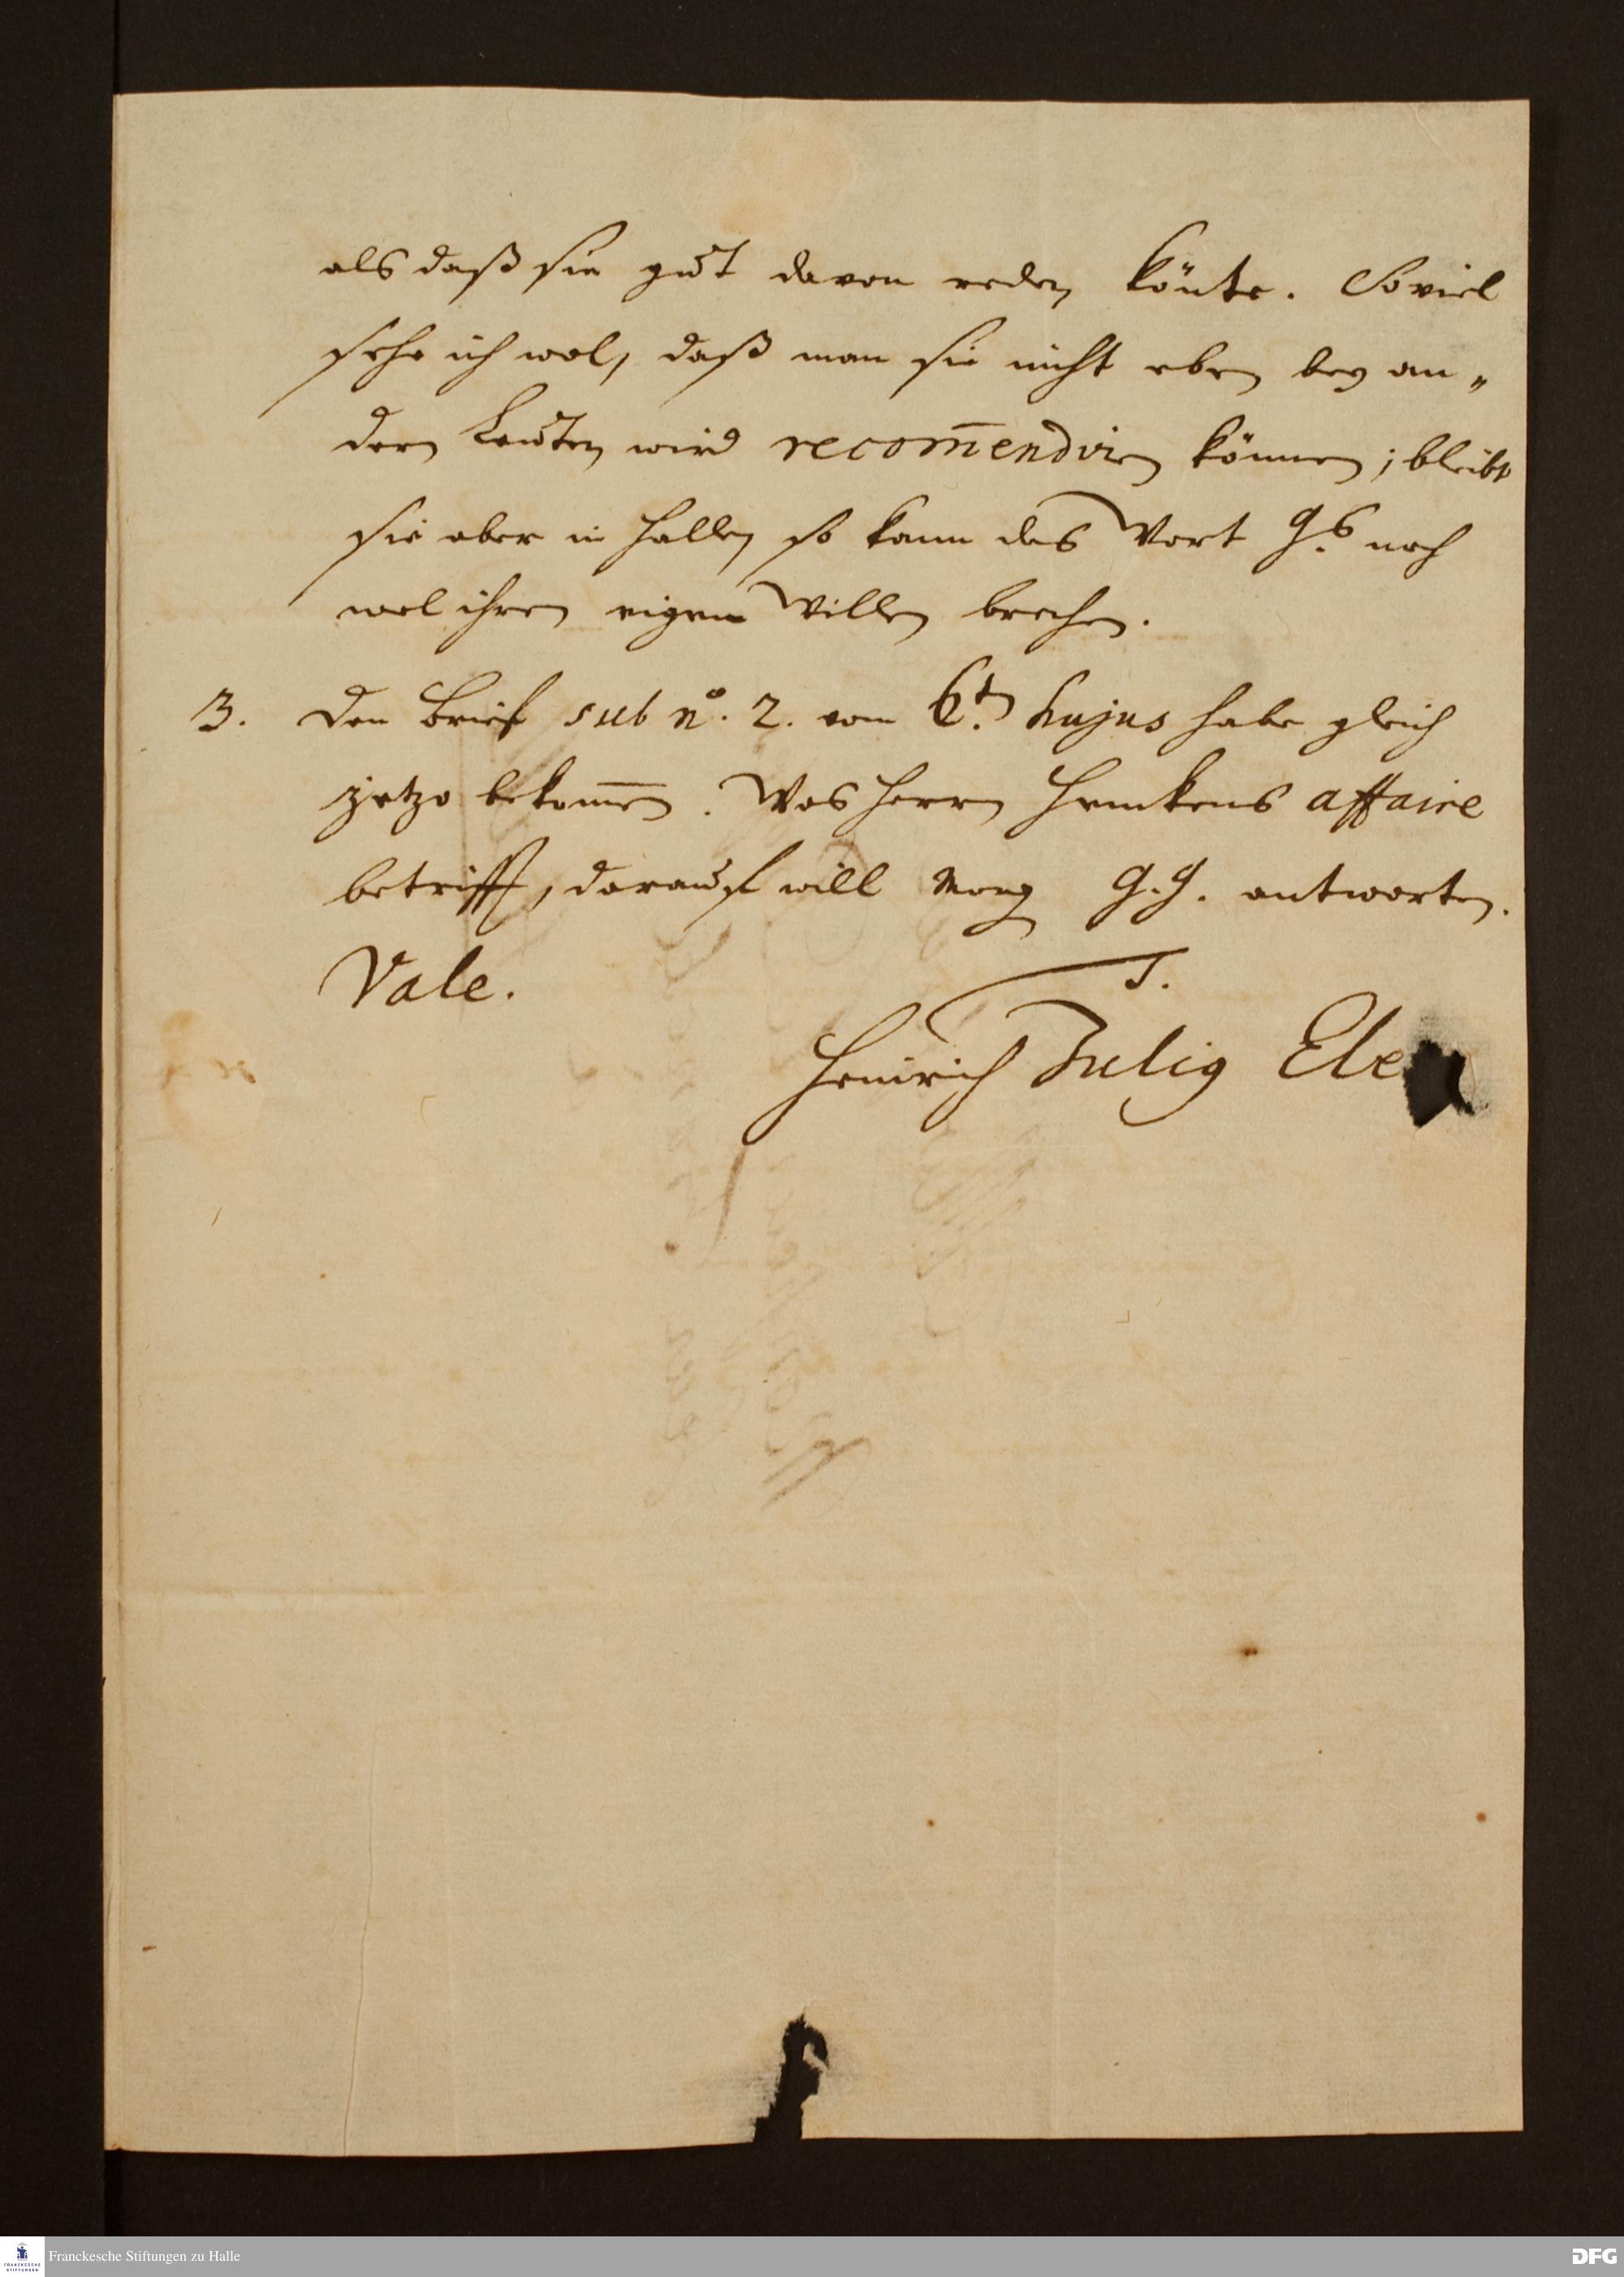 als daß sie gut davon reden könte. Soviel
sehe ich wol, daß man sie nicht eben bey an„
dern Leuten wird recom̄endiren können; bleibt
sie aber in Halle, so kann das Wort G.s noch
wol ihren eigen Willen brechen.
3. Den Brief sub no. 2. vom 6.t. hujus habe gleich
jetzo bekom̄en. Was Herrn Henckens affaire
betrifft, darauf will Morg G. G. antworten.
Vale.
T.
Heinrich Julig Ele
Franckesche Stiftungen zu Halle
FRANCKESCHE
STIFTUNGEN
DFG